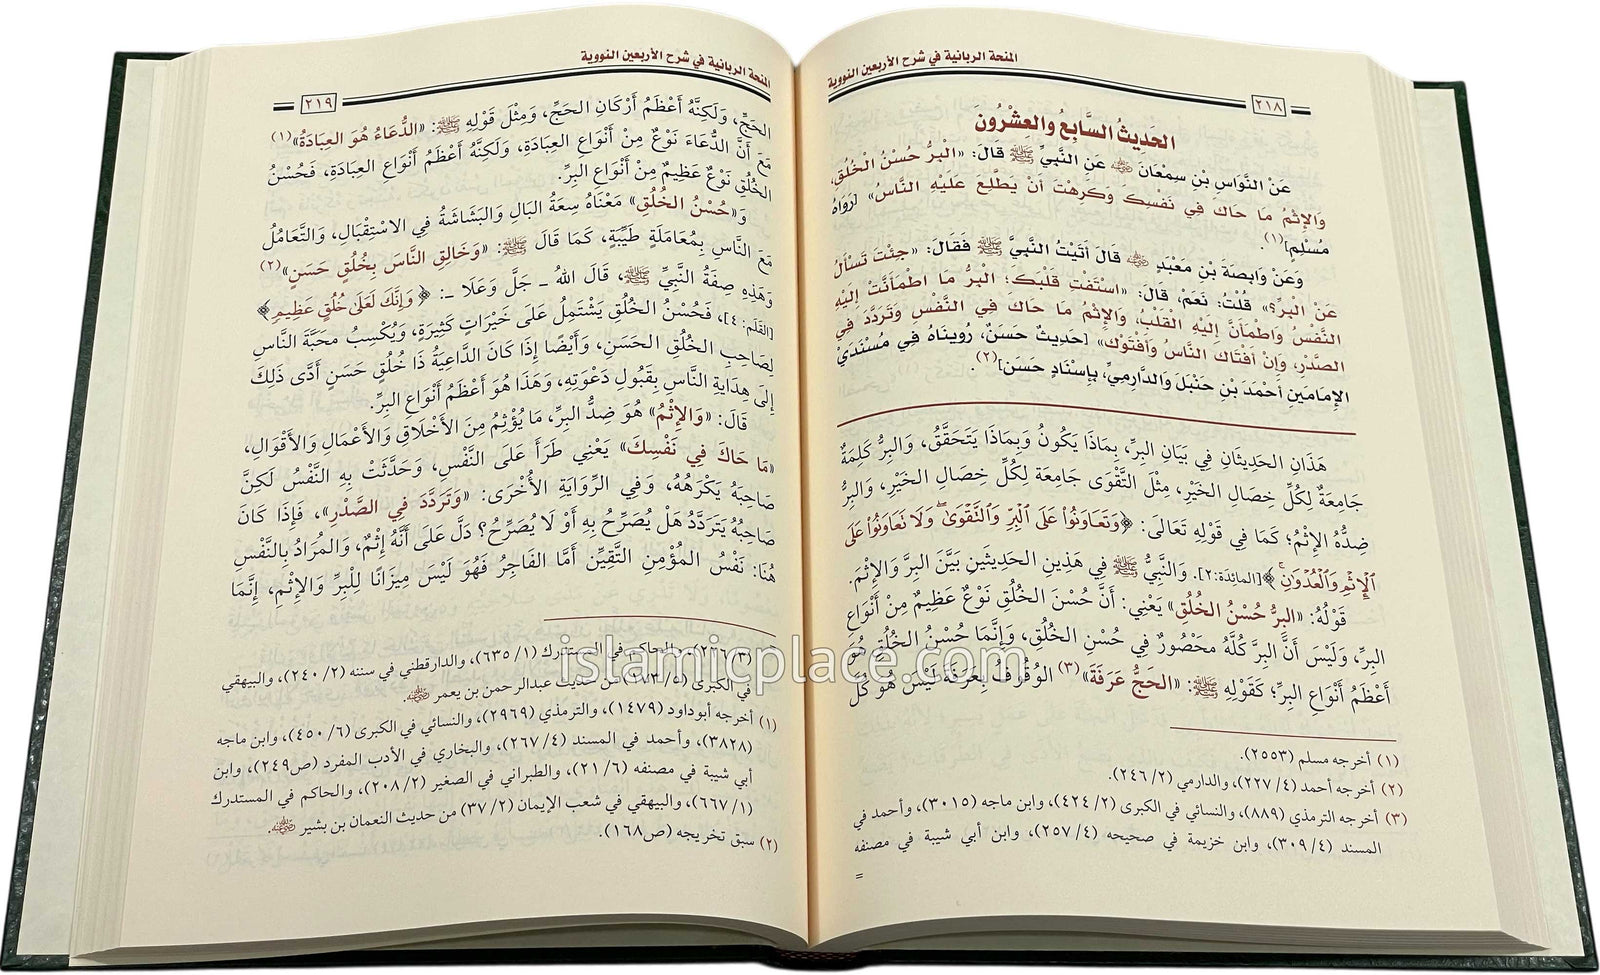 المنحة الربانية في شرح الأربعين النووية
٢١٨
الحَدِيثُ السَّابِعُ والعِشْرُونَ
عَنْ النَّوَّاسِ بْنِ سِمْعَانَ ﵁ عَنِ النَّبِيِّ ﷺ قَالَ: «الْبِرُّ حُسْنُ الْخُلُقِ،
وَالإِثْمُ مَا حَاكَ فِي نَفْسِكَ وَكَرِهْتَ أَنْ يَطَّلِعَ عَلَيْهِ النَّاسُ» [رَوَاهُ
مُسْلِم](١).
وَعَنْ وَابِصَةَ بْنِ مَعْبَدٍ ﵁ قَالَ أَتَيْتُ النَّبِيَّ ﷺ فَقَالَ: «جِئْتَ تَسْأَلُ
عَنْ الْبِرِّ؟» قُلْتُ: نَعَمْ، قَالَ: «اسْتَفْتِ قَلْبَكَ؛ الْبِرُّ مَا اطْمَأَنَّتْ إِلَيْهِ
النَّفْسُ وَاطْمَأَنَّ إِلَيْهِ الْقَلْبُ، وَالإِثْمُ مَا حَاكَ فِي النَّفْسِ وَتَرَدَّدَ فِي
الصَّدْرِ، وَإِنْ أَفْتَاكَ النَّاسُ وَأَفْتَوْكَ» [حَدِيثٌ حَسَنٌ، رُوِينَاهُ فِي مُسْنَدَيْ
الإِمَامَينِ أَحْمَدَ بْنِ حَنْبَلَ وَالدَّارِمِيِّ، بِإِسْنَادٍ حَسَنٍ](٢).
هَذَانِ الحَدِيثَانِ فِي بَيَانِ البِرِّ، بِمَاذَا يَكُونُ وَبِمَاذَا يَتَحَقَّقُ، وَالبِرُّ كَلِمَةٌ
جَامِعَةٌ لِكُلِّ خِصَالِ الخَيْرِ، مِثْلَ التَّقْوَى جَامِعَة لِكُلِّ خِصَالِ الخَيْرِ، وَالبِرُّ
ضِدُّهُ الإِثْمُ؛ كمَا فِي قَوْلِهِ تَعَالَى: ﴿وَتَعَاوَنُوا۟ عَلَى ٱلْبِرِّ وَٱلتَّقْوَىٰ ۖ وَلَا تَعَاوَنُوا۟ عَلَى
ٱلْإِثْمِ وَٱلْعُدْوَٰنِ ۚ﴾ [المائِدَة:٢]. وَالنَّبِيُّ ﷺ فِي هَذَيِنِ الحَدِيثَينِ بَيَّنَ البِرَّ وَالإِثْمَ.
قَوْلُهُ: «البِرُّ حُسْنُ الخُلُقِ» يَعْنِي: أَنَّ حُسْنَ الخُلُقِ نَوْعٌ عَظِيمٌ مِنْ أَنْوَاعِ
البِرِّ، وَلَيْسَ أَنَّ البِرَّ كُلَّهُ مَحْصُورٌ فِي حُسْنِ الخُلُقِ، وَإِنَّمَا حُسْنُ الخُلُقِ هُوَ
أَعْظَمُ أَنْوَاعِ البِرِّ؛ كَقَوْلِهِ ﷺ: «الحَجُّ عَرَفَةَ»(٣) الوُقُوفُ بِعَرَفَةَ لَيْسَ هُوَ كُلُّ
(١) أخرجه مسلم (٢٥٥٣).
(٢) أخرجه أحمد (٤/ ٢٢٧)، والدارمي (٢/ ٢٤٦).
(٣) أخرجه الترمذي (٨٨٩)، والنسائي في الكبرى (٢/ ٤٢٤)، وابن ماجه (٣٠١٥)، وأحمد في
المسند (٤/ ٣٠٩)، وابن خزيمة في صحيحه (٤/ ٢٥٧)، وابن أبي شيبة في مصنفه
=
المنحة الربانية في شرح الأربعين النووية
٢١٩
الحَجِّ، وَلَكِنَّهُ أَعْظَمُ أَرْكَانِ الحَجِّ، وَمِثْلَ قَوْلِهِ ﷺ: «الدُّعَاءُ هُوَ العِبَادَةُ»(١)
مَعَ أَنَّ الدُّعَاءَ نَوْعٌ مِنْ أَنْوَاعِ العِبَادَةِ، وَلَكِنَّهُ أَعْظَمُ أَنْوَاعِ العِبَادَةِ، فَحُسْنُ
الخُلُقِ نَوْعٌ عَظِيمٌ مِنْ أَنْوَاعِ البِرِّ.
وَ«حُسْنُ الخُلُقِ» مَعْنَاهُ سِعَةُ البَالِ وَالبَشَاشَةُ فِي الاسْتِقْبَالِ، وَالتَّعَامُلُ
مَعَ النَّاسِ بِمُعَامَلَةٍ طَيِّبَةٍ، كَمَا قَالَ ﷺ: «وَخَالِقِ النَّاسَ بِخُلُقٍ حَسَنٍ»(٢)
وَهَذِهِ صِفَةُ النَّبِيِّ ﷺ، قَالَ اللهُ ـ جَلَّ وَعَلَا ـ: ﴿وَإِنَّكَ لَعَلَىٰ خُلُقٍ عَظِيمٍ﴾
[القَلَم: ٤]، فَحُسْنُ الخُلُقِ يَشْتَمِلُ عَلَى خَيْرَاتٍ كَثِيرَةٍ، وَيُكْسِبُ مَحَبَّةَ النَّاسِ
لِصَاحِبِ الخُلُقِ الحَسَنِ، وَأَيْضًا إِذَا كَانَ الدَّاعِيَةُ ذَا خُلُقٍ حَسَنٍ أَدَّى ذَلِكَ
إِلَى هِدَايَةِ النَّاسِ بِقَبُولِ دَعْوَتِهِ، وَهَذَا هُوَ أَعْظَمُ أَنْوَاعِ البِرِّ.
قَالَ: «وَالإِثْمُ» هُوَ ضِدُّ البِرِّ، مَا يُؤْثِمُ مِنَ الأَخْلَاقِ وَالأَعْمَالِ وَالأَقْوَالِ،
«مَا حَاكَ فِي نَفْسِكَ» يَعْنِي طَرَأَ عَلَى النَّفْسِ، وَحَدَّثَتْ بِهِ النَّفْسُ لَكِنَّ
صَاحِبَهُ يَكْرَهُهُ، وَفِي الرِّوَايَةِ الأُخْرَى: «وَتَرَدَّدَ فِي الصَّدْرِ»، فَإِذَا كَانَ
صَاحِبُهُ يَتَرَدَّدُ هَلْ يُصَرِّحُ بِهِ أَوْ لَا يُصَرِّحُ؟ دَلَّ عَلَى أَنَّهُ إِثْمٌ، وَالمُرَادُ بِالنَّفْسِ
هُنَا: نَفْسُ المُؤْمِنِ التَّقِيِّن أَمَّا الفَاجِرُ فَهُوَ لَيْسَ مِيزَانًا لِلْبِرِّ وَالإِثْمِ، إِنَّمَا
(٣/ ٢٢٦)، والحاكم في المستدرك (١/ ٦٣٥)، والدارقطني في سننه (٢/ ٢٤٠)، والبيهقي
في الكبرى (٥/ ١٧٣) من حديث عبدالرحمن بن يعمر ﵁.
(١) أخرجه أبوداود (١٤٧٩)، والترمذي (٢٩٦٩)، والنسائي في الكبرى (٦/ ٤٥٠)، وابن ماجه
(٣٨٢٨)، وأحمد في المسند (٤/ ٢٦٧)، والبخاري في الأدب المفرد (ص٢٤٩)، وابن
أبي شيبة في مصنفه (٦/ ٢١)، والطبراني في الصغير (٢/ ٢٠٨)، والحاكم في المستدرك
(١/ ٦٦٧)، والبيهقي في شعب الإيمان (٢/ ٣٧) من حديث النعمان بن بشير ﵁.
(٢) سبق تخريجه (ص١٦٨).
islamicplace.com